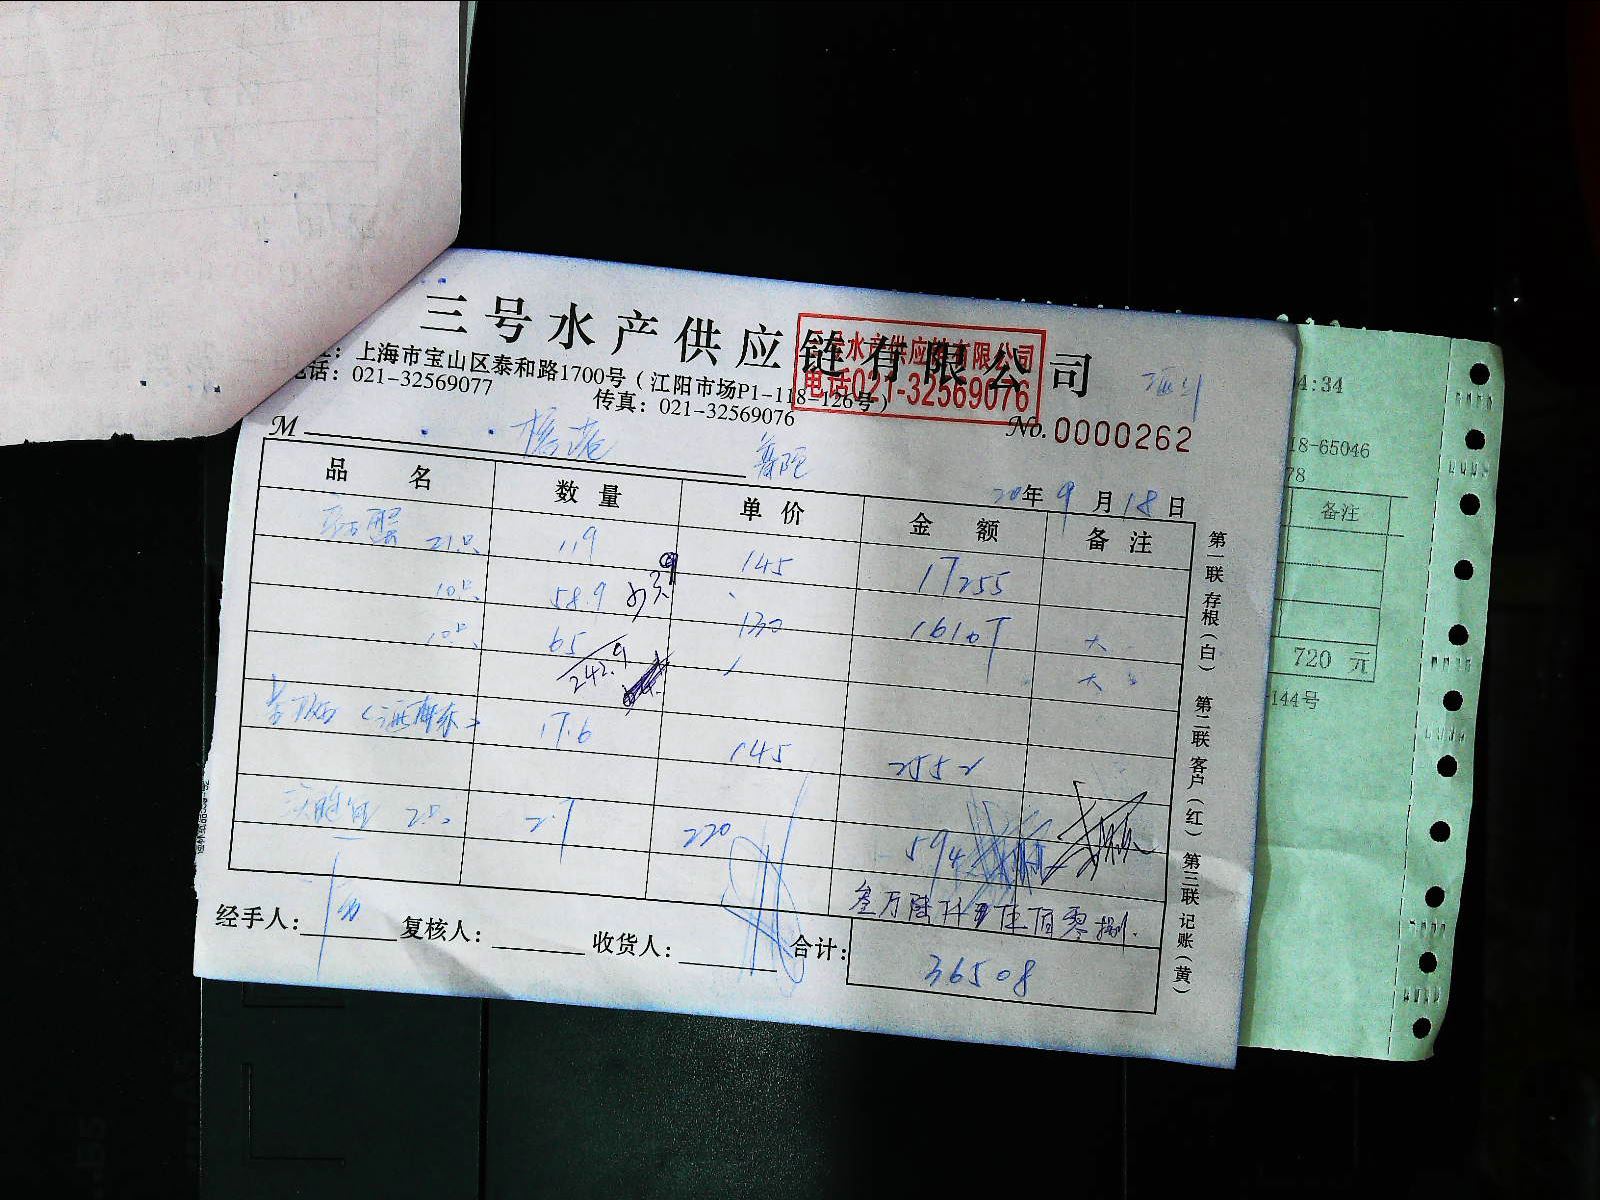 三号水产供应链有限公司
三号水产供应链有限公司
电话021-32569076
上海市宝山区泰和路1700号（江阳市场P1-118-126号）
电话：021-32569077 传真：021-32569076
No.0000262
M
20年9月18日
品 名 数 量 单 价 金 额 备 注
蟹 21只 119 145 17255
10只 58.9 130 16107 大
10只 65 大
242.9
17.6 145 2552
2只 2.7 220 594
叁万陆仟 伍佰零捌
经手人： 复核人： 收货人： 合计：
36508
第一联 存根（白） 第二联 客户（红） 第三联 记账（黄）
4:34
18-65046
78
备注
720 元
144号